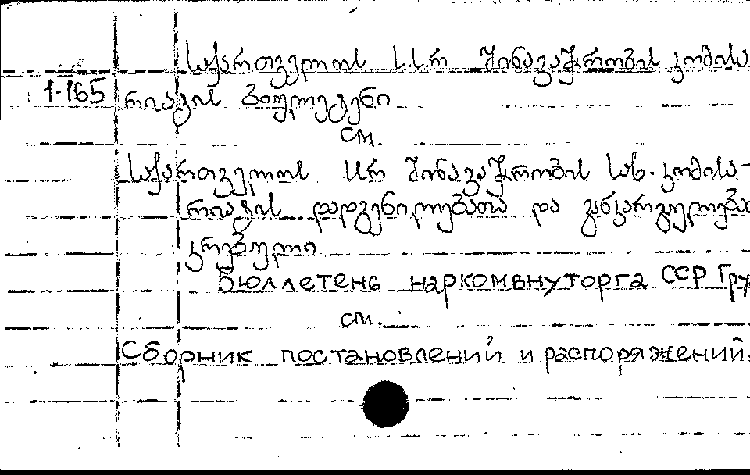 საქართველოს ს.ს.რ შინავაჭრობის კომისა
1-165 რიატის ბიულეტენი
см.
საქართველოს სსრ შინავაჭრობის სახ. კომისა-
რიატის დადგენილებათა და განკარგულება
კრებული
Бюллетень наркомвнуторга ССР Гру
см.
Сборник постановлений и распоряжений.